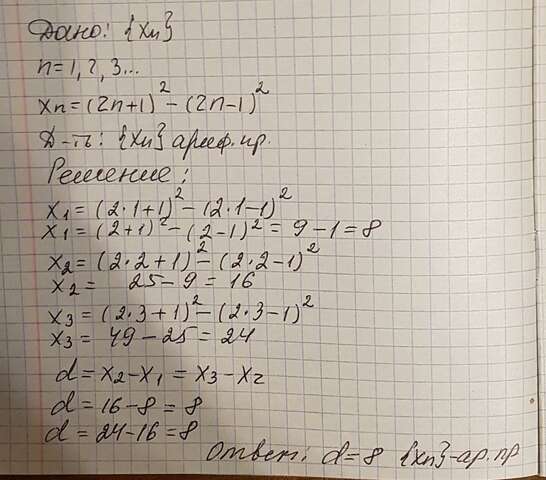 Дано: {xn}
n=1, 2, 3...
xn=(2n+1)²-(2n-1)²
Д-ть: {xn} ариф.пр.
Решение:
x₁=(2·1+1)²-(2·1-1)²
x₁=(2+1)²-(2-1)²=9-1=8
x₂=(2·2+1)²-(2·2-1)²
x₂= 25-9=16
x₃=(2·3+1)²-(2·3-1)²
x₃=49-25=24
d=x₂-x₁=x₃-x₂
d=16-8=8
d=24-16=8
Ответ: d=8 {xn}-ар.пр